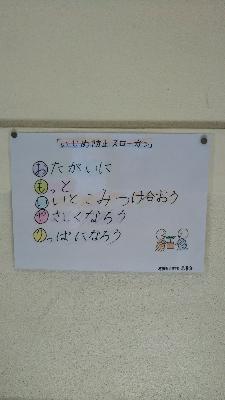 「いじめ防止スローガン」
おたがいに
もっと
いいとこみつけ合おう
やさしくなろう
りっぱになろう